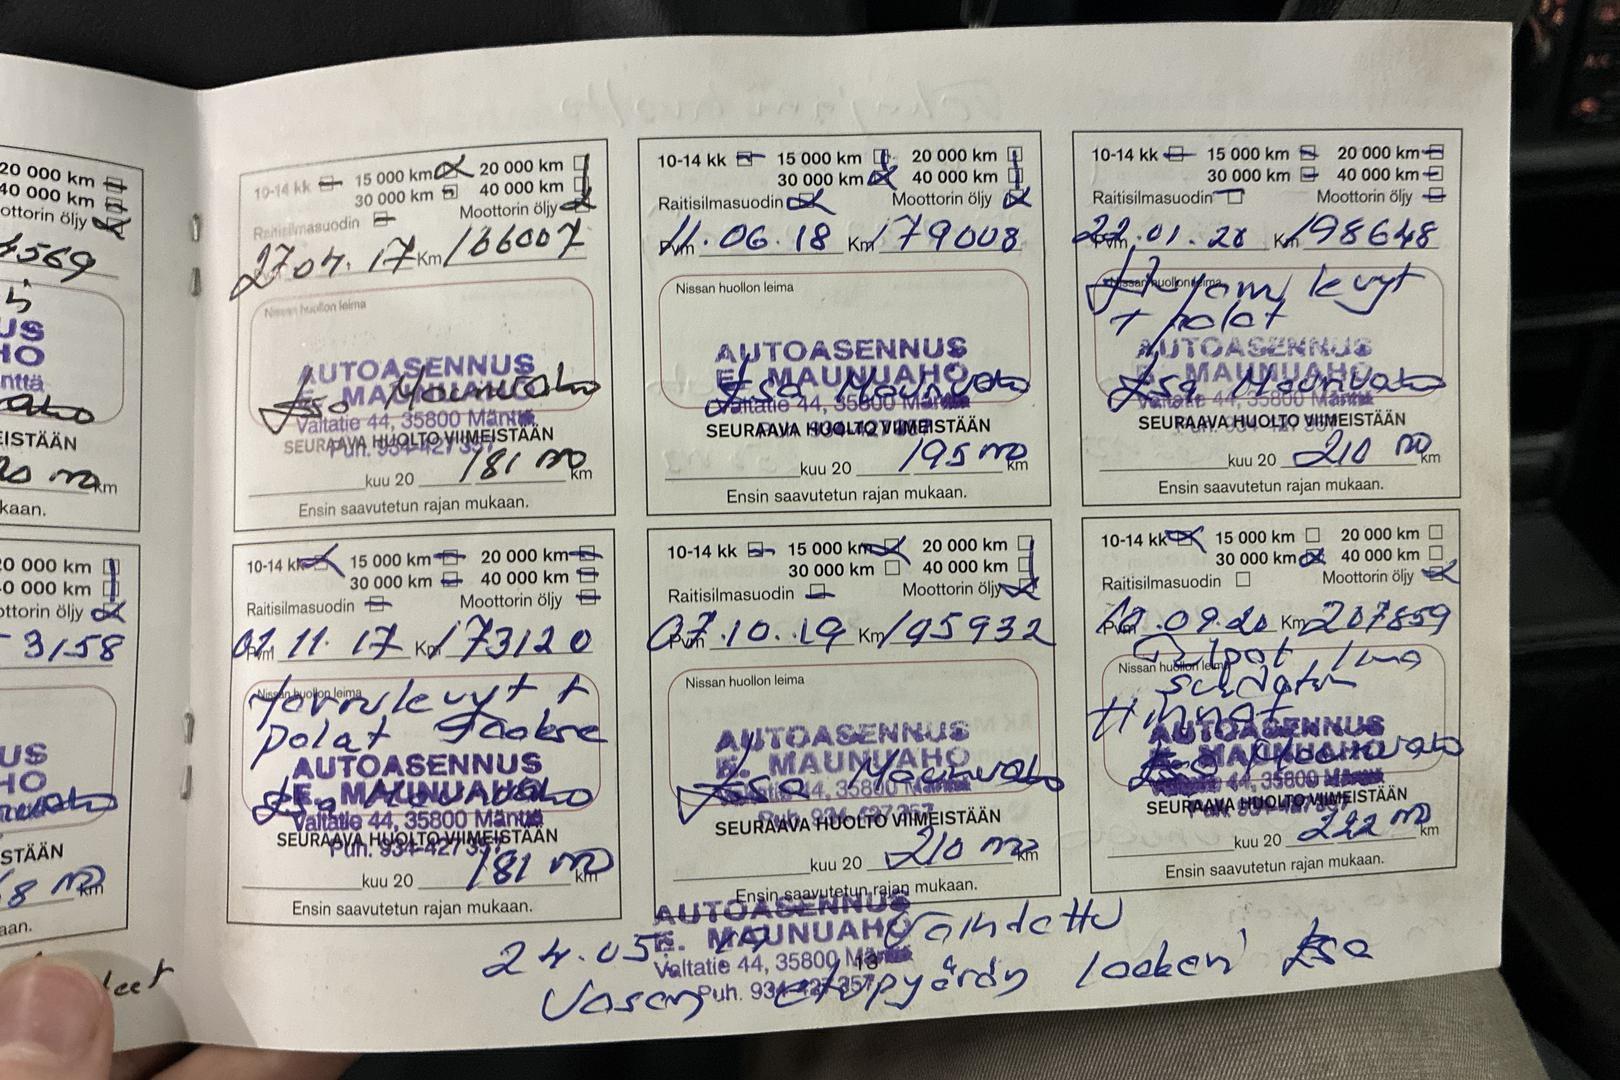 20 000 km
40 000 km
Moottorin öljy
4569
ISTÄÄN
km
kaan.
20 000 km
40 000 km
Moottorin öljy
3158
STÄÄN
km
aan.
10-14 kk 15 000 km 20 000 km
30 000 km 40 000 km
Raitisilmasuodin Moottorin öljy
27 04. 17 Km 166007
Nissan huollon leima
AUTOASENNUS
E. MAUNUAHO
Esa Maunuaho
Valtatie 44, 35800 Mänttä
SEURAAVA HUOLTO VIIMEISTÄÄN
Puh. 934-427 357
kuu 20 181 m km
Ensin saavutetun rajan mukaan.
10-14 kk 15 000 km 20 000 km
30 000 km 40 000 km
Raitisilmasuodin Moottorin öljy
Pvm 11.06.18 Km 179008
Nissan huollon leima
AUTOASENNUS
E. MAUNUAHO
Esa Maunuaho
Valtatie 44, 35800 Mänttä
SEURAAVA HUOLTO VIIMEISTÄÄN
kuu 20 195 m km
Ensin saavutetun rajan mukaan.
10-14 kk 15 000 km 20 000 km
30 000 km 40 000 km
Raitisilmasuodin Moottorin öljy
Pvm 22.01.20 Km 198648
Nissan huollon leima
levyt
+ palat
AUTOASENNUS
E. MAUNUAHO
Esa Maunuaho
Valtatie 44, 35800 Mänttä
SEURAAVA HUOLTO VIIMEISTÄÄN
kuu 20 210 m km
Ensin saavutetun rajan mukaan.
10-14 kk 15 000 km 20 000 km
30 000 km 40 000 km
Raitisilmasuodin Moottorin öljy
Pvm 11. 17 Km 173120
Nissan huollon leima
Jarrulevyt +
palat Taakse
AUTOASENNUS
E. MAUNUAHO
Esa Maunuaho
Valtatie 44, 35800 Mänttä
SEURAAVA HUOLTO VIIMEISTÄÄN
Puh. 934-427 357
kuu 20 181 m km
Ensin saavutetun rajan mukaan.
10-14 kk 15 000 km 20 000 km
30 000 km 40 000 km
Raitisilmasuodin Moottorin öljy
Pvm 07.10.19 Km 195932
Nissan huollon leima
AUTOASENNUS
E. MAUNUAHO
Esa Maunuaho
Valtatie 44, 35800 Mänttä
Puh. 934-427 357
SEURAAVA HUOLTO VIIMEISTÄÄN
kuu 20 210 m km
Ensin saavutetun rajan mukaan.
10-14 kk 15 000 km 20 000 km
30 000 km 40 000 km
Raitisilmasuodin Moottorin öljy
Pvm .09.20 Km 207859
Nissan huollon leima
Tulpat Ilma
suodatin
Hihnat
AUTOASENNUS
E. MAUNUAHO
Esa Maunuaho
Valtatie 44, 35800 Mänttä
SEURAAVA HUOLTO VIIMEISTÄÄN
kuu 20 222 m km
Ensin saavutetun rajan mukaan.
AUTOASENNUS
E. MAUNUAHO
Valtatie 44, 35800 Mänttä
Puh. 934-427 357
24.05. 19 Vaihdettu
Vasen etupyörän laakeri Esa
13